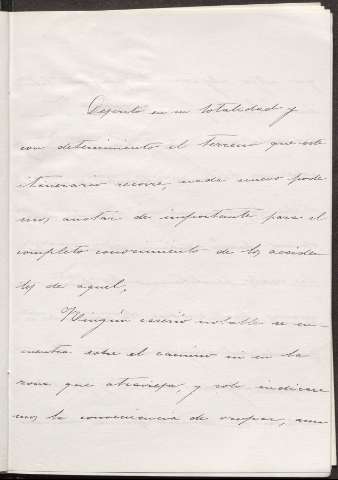 Descrito en su totalidad y
con detenimiento el terreno que este
itinerario recorre, nada nuevo pode
mos anotar de importante para el
completo conocimiento de los acciden
tes de aquel.
Ningún caserío notable se en-
cuentra sobre el camino ni en la
zona que atraviesa, y solo indicare
mos la conveniencia de ocupar, aun